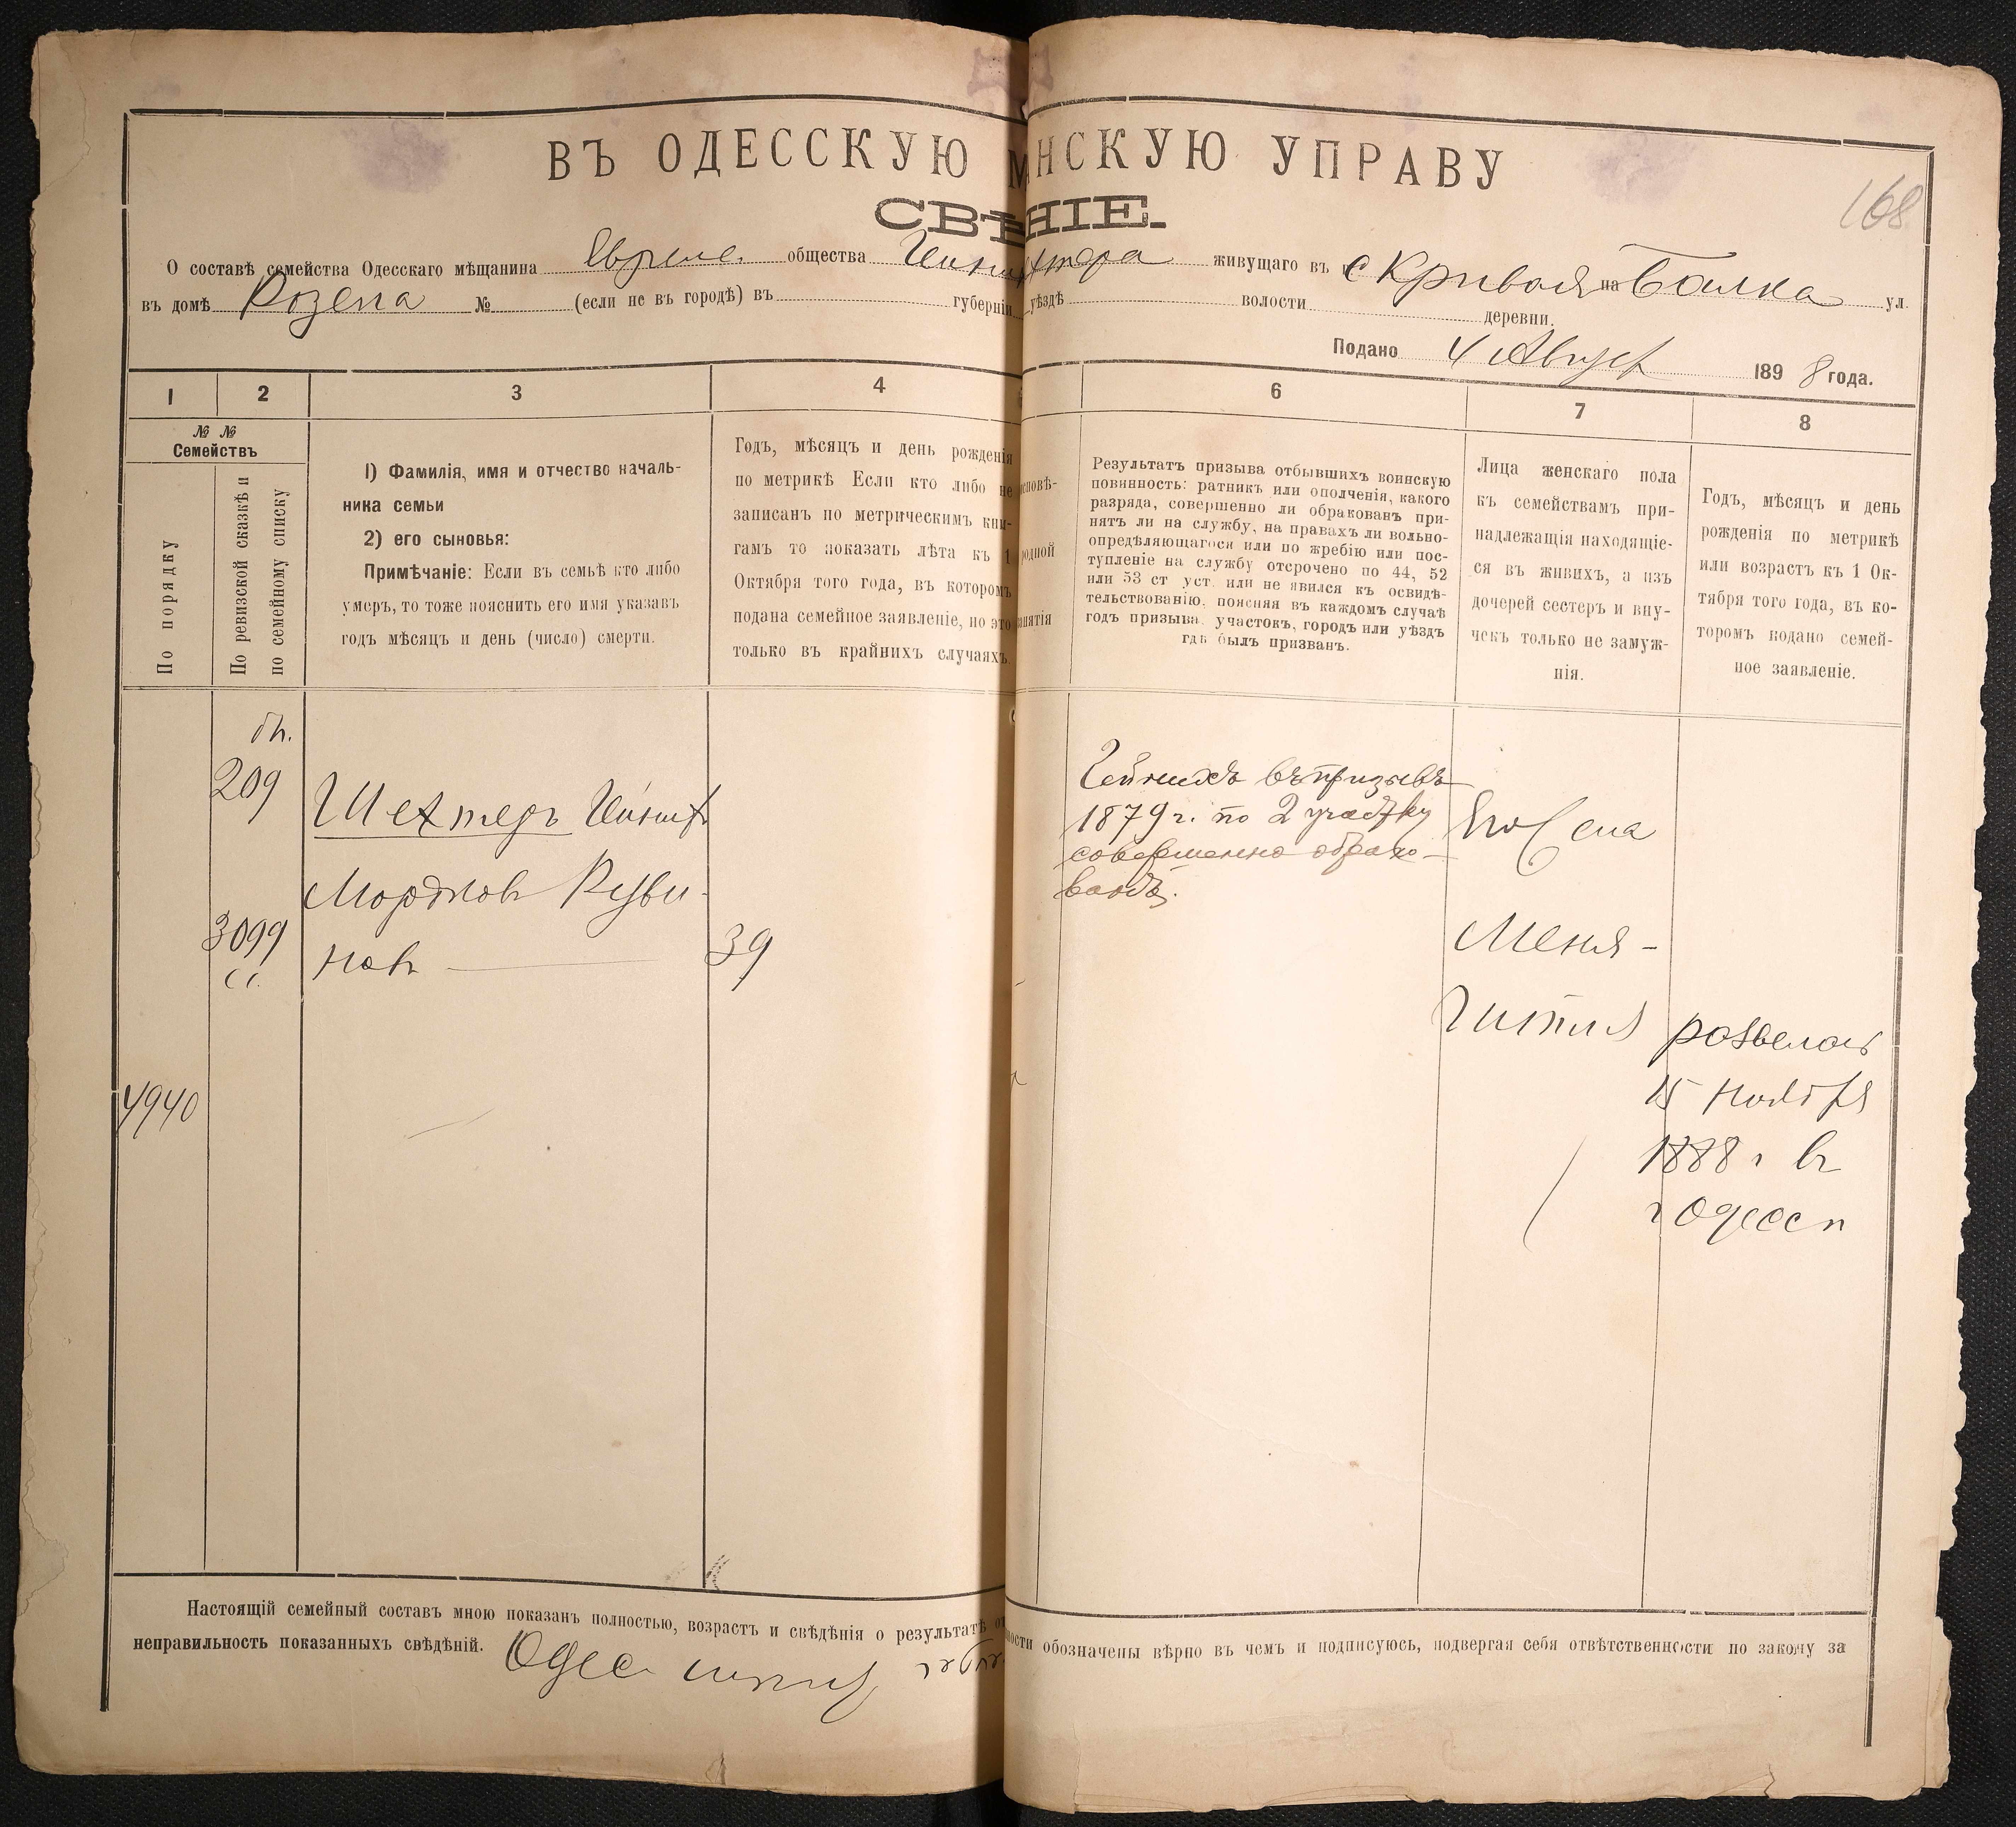 168
ВЪ ОДЕССКУЮ М НСКУЮ УПРАВУ
СВѢ НІЕ.
О составѣ семейства Одесскаго мѣщанина Еврейс. общества живущаго въ с Кривоя на Балка ул.
въ домѣ Розена № (если не въ городѣ) въ губерніи уѣздѣ волости деревни.
Подано 4 Август 1898 года.
1 2 3 4 6 7 8
№ №
Семействъ
По порядку
По ревизской сказкѣ и
по семейному списку
1) Фамилія, имя и отчество началь-
ника семьи
2) его сыновья:
Примѣчаніе: Если въ семьѣ кто либо
умеръ, то тоже пояснить его имя указавъ
годъ мѣсяцъ и день (число) смерти.
Годъ, мѣсяцъ и день рожденія
по метрикѣ Если кто либо не
записанъ по метрическимъ кни-
гамъ то показать лѣта къ 1
Октября того года, въ которомъ
подана семейное заявленіе, но это
только въ крайнихъ случаяхъ.
исповѣ-
родной
занятія
Результатъ призыва отбывшихъ воинскую
повинность: ратникъ или ополченія, какого
разряда, совершенно ли обракованъ при-
нятъ ли на службу, на правахъ ли вольно-
опредѣляющагося или по жребію или пос-
тупленіе на службу отсрочено по 44, 52
или 53 ст уст. или не явился къ освидѣ-
тельствованію, поясняя въ каждомъ случаѣ
годъ призыва, участокъ, городъ или уѣздъ
гдѣ былъ призванъ.
Лица женскаго пола
къ семействамъ при-
надлежащія находящіе-
ся въ живихъ, а изъ
дочерей сестеръ и вну-
чекъ только не замуж-
нія.
Годъ, мѣсяцъ и день
рожденія по метрикѣ
или возрастъ къ 1 Ок-
тября того года, въ ко-
торомъ подано семей-
ное заявленіе.
209
Шехтеръ
Мордков Руви-
3099
нов
39
4940
въ призывѣ
1879 г. по 2 участку
совершенно обрако-
ванъ.
Его жена
Меня-
Гитля развелась
15 Ноября
1888 г в
г Одессѣ
Настоящій семейный составъ мною показанъ полностью, возрастъ и свѣдѣнія о результатѣ от ности обозначены вѣрно въ чемъ и подписуюсь, подвергая себя отвѣтственности по закону за
неправильность показанныхъ свѣдѣній.